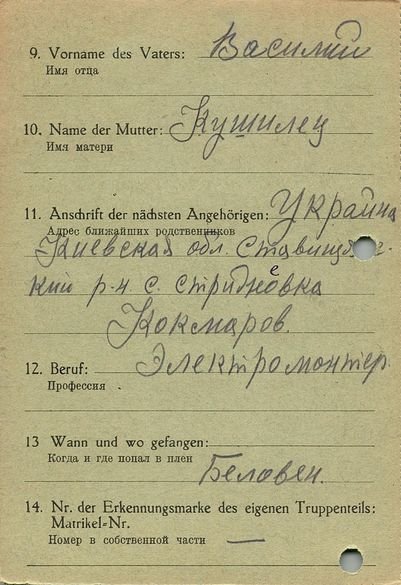 9. Vorname des Vaters: Василий
Имя отца
10. Name der Mutter: Кушилец
Имя матери
11. Anschrift der nächsten Angehörigen: Украина
Адрес ближайших родственников
Киевская обл. Ставищан-
кий р-н с. Стрижевка
Кокмаров.
12. Beruf: Электромонтер.
Профессия
13 Wann und wo gefangen:
Когда и где попал в плен
Беловеж.
14. Nr. der Erkennungsmarke des eigenen Truppenteils:
Matrikel-Nr.
Номер в собственной части —